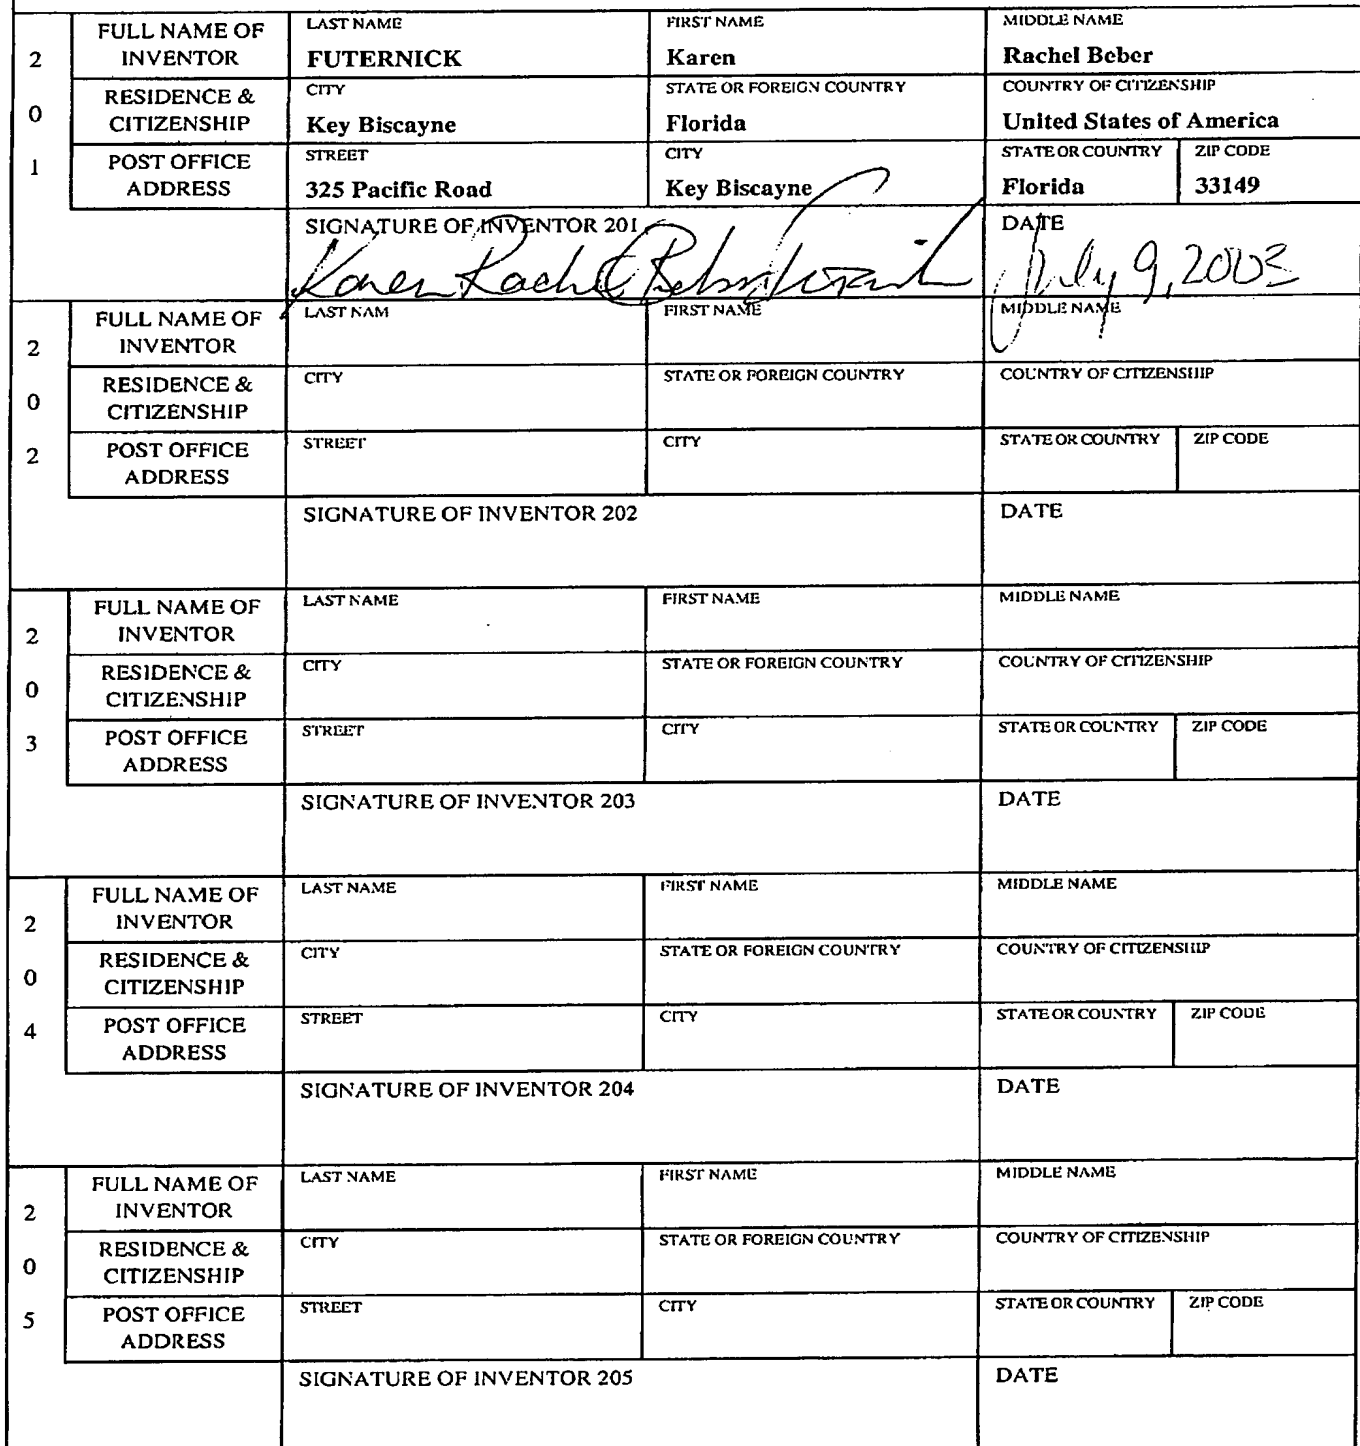 FULL NAME OF INVENTOR LAST NAME FIRST NAME MIDDLE NAME
2 FUTERNICK Karen Rachel Beber
RESIDENCE & CITIZENSHIP CITY STATE OR FOREIGN COUNTRY COUNTRY OF CITIZENSHIP
0 Key Biscayne Florida United States of America
POST OFFICE ADDRESS STREET CITY STATE OR COUNTRY ZIP CODE
1 325 Pacific Road Key Biscayne Florida 33149
SIGNATURE OF INVENTOR 201 DATE
Karen Rachel Beber Futernick July 9, 2003
FULL NAME OF INVENTOR LAST NAM FIRST NAME MIDDLE NAME
2
RESIDENCE & CITIZENSHIP CITY STATE OR FOREIGN COUNTRY COUNTRY OF CITIZENSHIP
0
POST OFFICE ADDRESS STREET CITY STATE OR COUNTRY ZIP CODE
2
SIGNATURE OF INVENTOR 202 DATE
FULL NAME OF INVENTOR LAST NAME FIRST NAME MIDDLE NAME
2
RESIDENCE & CITIZENSHIP CITY STATE OR FOREIGN COUNTRY COUNTRY OF CITIZENSHIP
0
POST OFFICE ADDRESS STREET CITY STATE OR COUNTRY ZIP CODE
3
SIGNATURE OF INVENTOR 203 DATE
FULL NAME OF INVENTOR LAST NAME FIRST NAME MIDDLE NAME
2
RESIDENCE & CITIZENSHIP CITY STATE OR FOREIGN COUNTRY COUNTRY OF CITIZENSHIP
0
POST OFFICE ADDRESS STREET CITY STATE OR COUNTRY ZIP CODE
4
SIGNATURE OF INVENTOR 204 DATE
FULL NAME OF INVENTOR LAST NAME FIRST NAME MIDDLE NAME
2
RESIDENCE & CITIZENSHIP CITY STATE OR FOREIGN COUNTRY COUNTRY OF CITIZENSHIP
0
POST OFFICE ADDRESS STREET CITY STATE OR COUNTRY ZIP CODE
5
SIGNATURE OF INVENTOR 205 DATE